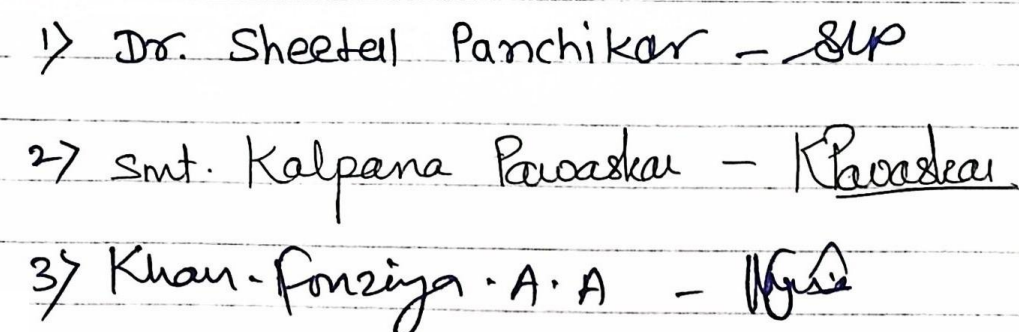 1) Dr. Sheetal Panchikar - SLP
2) Smt. Kalpana Pavaskar - KPavaskar
3) Khan. Fouziya. A. A -